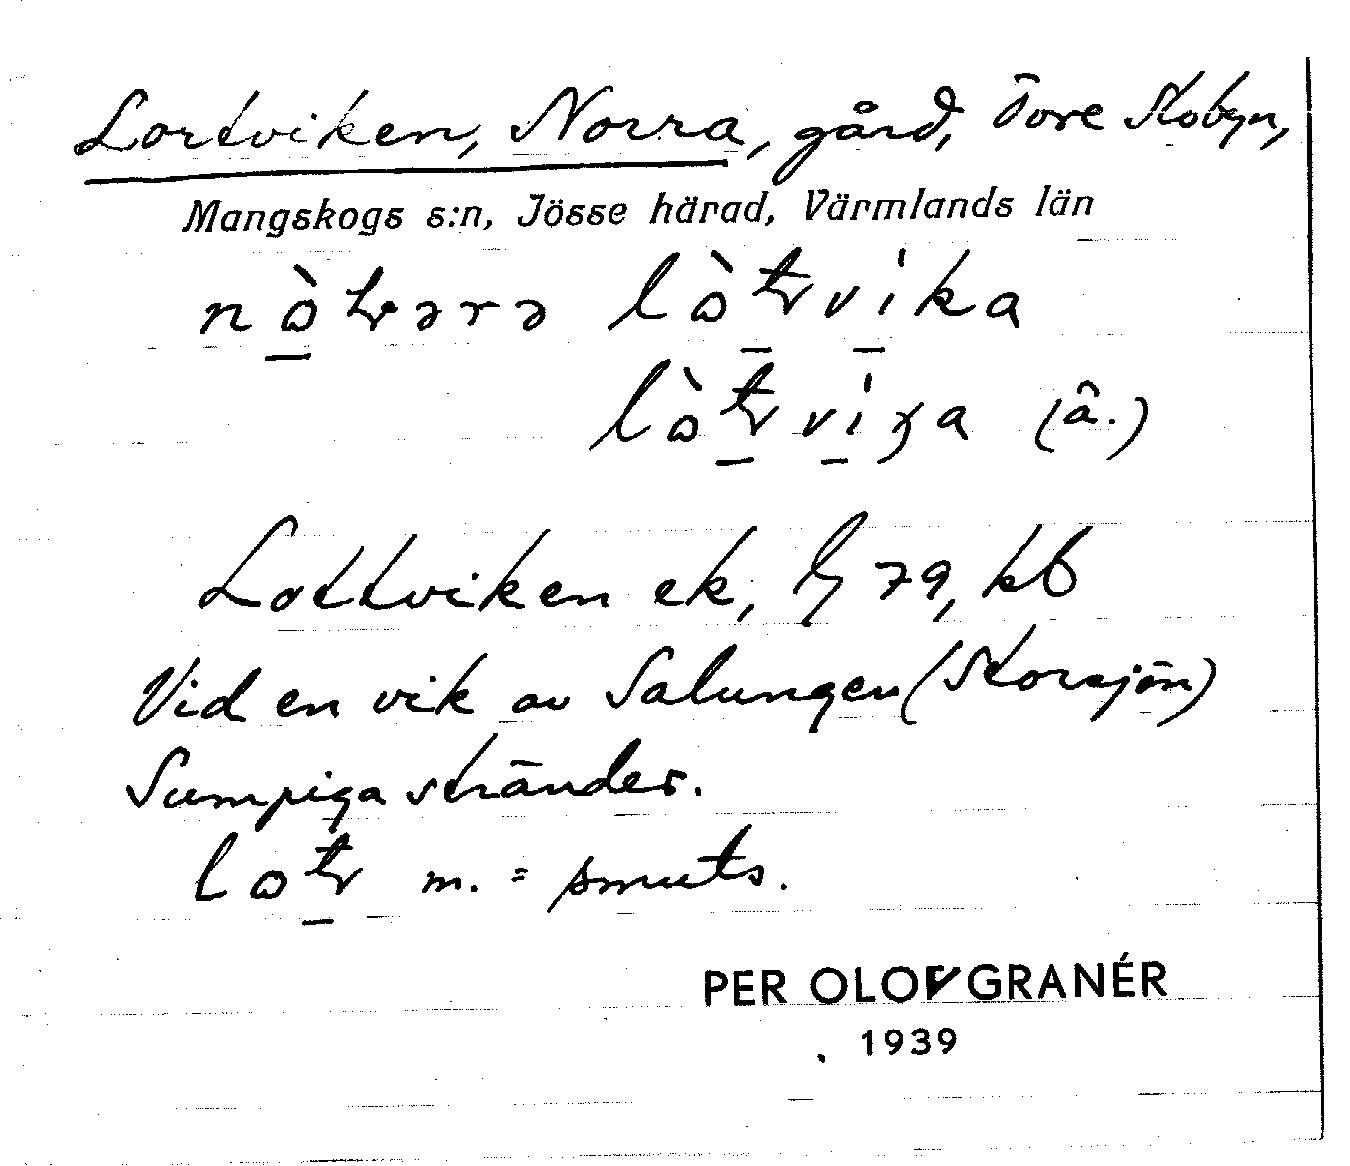 Lortviken, Norra, gård, Tore Skobyn,
Mangskogs s:n, Jösse härad, Värmlands län
(â.)
Lottviken ek, 79, kb
Vid en vik av Salungen (Storsjön)
Sumpiga stränder.
m. = smuts.
PER OLOV GRANÉR
1939